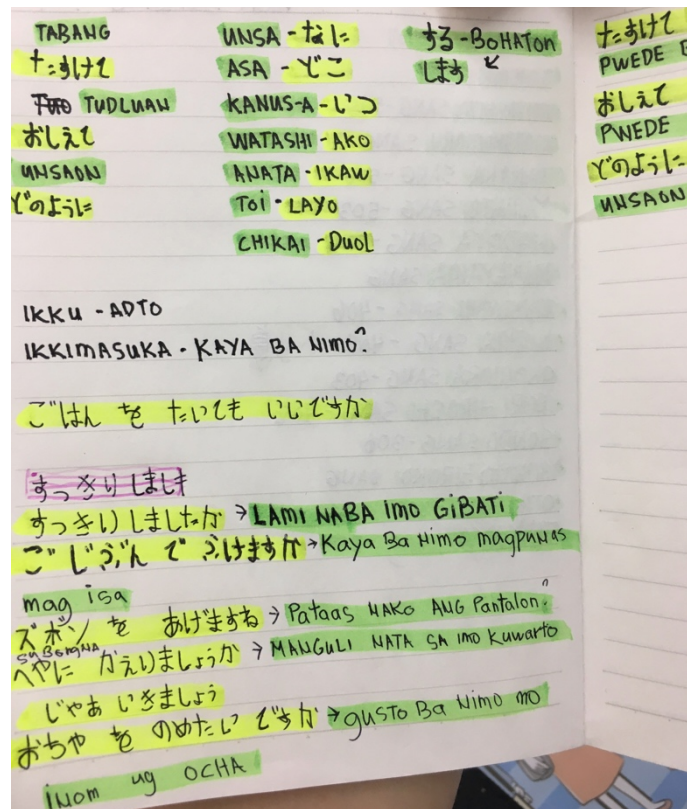 TABANG
たすけて
TUDLUAN
おしえて
UNSAON
どのように
UNSA - なに
ASA - どこ
KANUS-A - いつ
WATASHI - AKO
ANATA - IKAW
TOi - LAYO
CHIKAI - DuoL
する - BOHATON
します
IKKU - ADTO
IKKIMASUKA - KAYA BA NIMO?
ごはん を たいても いじですか
すっきりしまし
すっきりしましたか → LAMI NABA IMO GIBATI
ご じぶん で ふけますか → Kaya Ba Nimo magpunas
mag isa
ズボン を あげますね → Pataas NAKO ANG Pantalon?
へやに かえりましょうか → MANGULI NATA SA IMO Kuwarto
じゃあ いきましょう
おちゃ を のめたい ですか → gusto Ba Nimo mo
inom ug OCHA
たすけて
PWEDE
おしえて
PWEDE
どのように
UNSAON